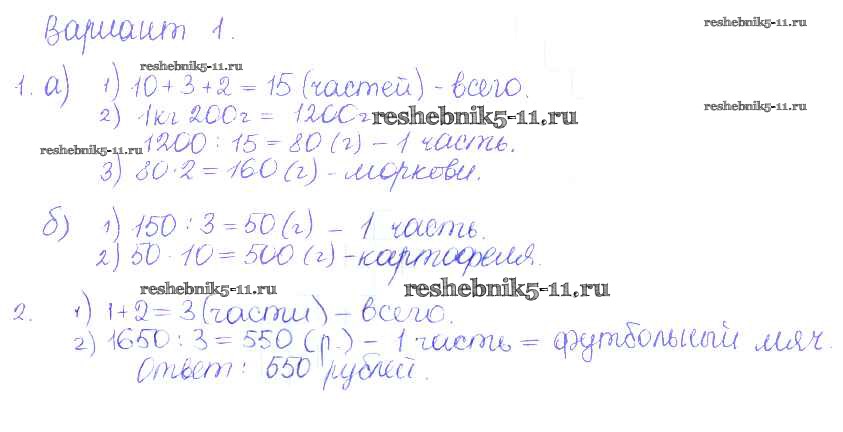 Вариант 1.
reshebnik5-11.ru
reshebnik5-11.ru
1. а) 1) 10+3+2=15 (частей) - всего.
2) 1кг 200г = 1200г
reshebnik5-11.ru
reshebnik5-11.ru
1200 : 15 = 80 (г) - 1 часть.
reshebnik5-11.ru
3) 80·2=160 (г) - моркови.
б) 1) 150 : 3 = 50 (г) - 1 часть.
2) 50 · 10 = 500 (г) - картофеля.
reshebnik5-11.ru
reshebnik5-11.ru
2. 1) 1+2=3 (части) - всего.
2) 1650 : 3 = 550 (р.) - 1 часть = футбольный мяч.
Ответ: 550 рублей.